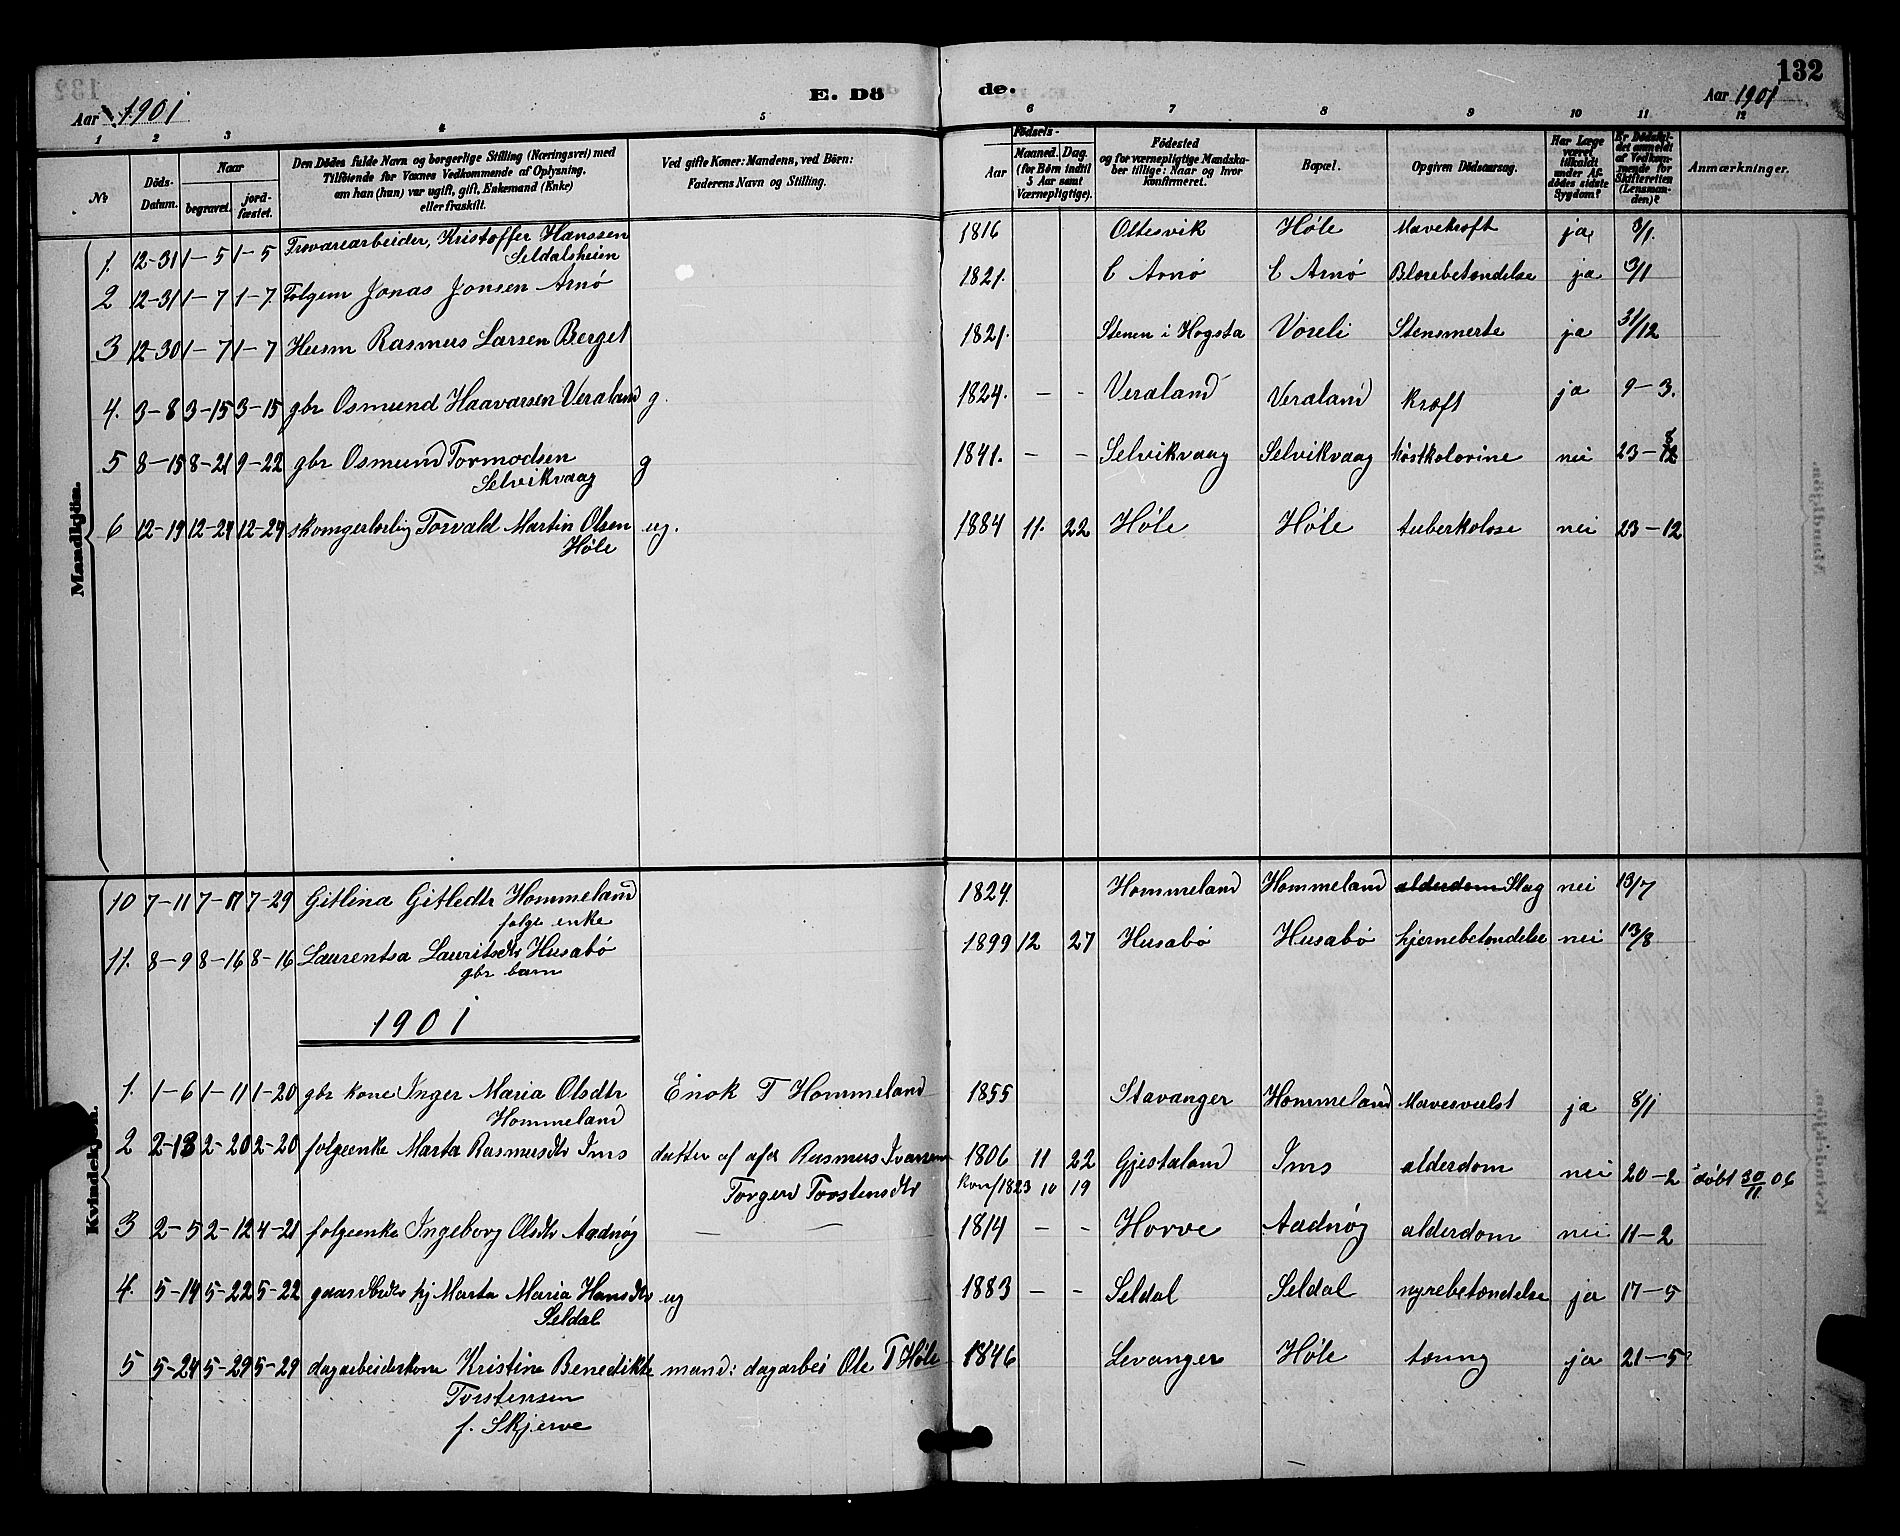 132
Aar 1901
E. Dö
de.
Aar 1901
1 2 3 4 5 6 7 8 9 10 11 12
No
Döds-
Datum.
Naar
begravet.
jord-
fæstet.
Den Dödes fulde Navn og borgerlige Stilling (Næringsvei) med
Tilföiende for Voxnes Vedkommende af Oplysning,
om han (hun) var ugift, gift, Enkemand (Enke)
eller fraskilt.
Ved gifte Koner: Mandens, ved Börn:
Faderens Navn og Stilling.
Födsels-
Aar
Maaned. Dag.
(for Börn indtil
5 Aar samt
Værnepligtige).
Födested
og for værnepligtige Mandska-
ber tillige: Naar og hvor
Konfirmeret.
Bopæl.
Opgiven Dödsaarsag.
Har Læge
været
tilkaldt
under Af-
dödes sidste
Sygdom?
Er Dödsfal-
det anmeldt
af Vedkom-
mende for
Skifteretten
(Lensman-
den)?
Anmærkninger.
Mandkjön.
1. 12-31 1-5 1-5 Trævarearbeider, Kristoffer Hanssen 1816 Oltesvik Høle Mavekræft ja 3/1.
Seldalsheien
2 12-31 1-7 1-7. Følgem Jonas Jonsen Arnø 1821. Arnø Arnø Blærebetændelse ja 3/1
3 12-30 1-7 1-7 Husm Rasmus Larsen Berget 1821. Stenen i Hogsta Voreli Stensmerte ja 31/12
4. 3-8 3-15 3-15 gbr Osmund Haavarsen Veraland g. 1824. - - Veraland Veraland kræft ja 9-3.
5 8-15 8-21 9-22 gbr Osmund Tormodsen g 1841. - - Selvikvaag Selvikvaag nei 23-8
Selvikvaag
6 12-19 12-29 12-29 Torvald Martin Olsen ug. 1884 11. 22 Høle Høle tuberkolose nei 23-12
Høle
Kvindekjön.
10 7-11 7-17 7-29 Gitlina Gitledtr Hommeland 1824. Hommeland Hommeland alderdom Slag nei 13/7
følge enke
11. 8-9 8-16 8-16 Laurentsa Lauritsdtr Husabø 1899 12 27 Husabø Husabø hjernebetændelse nei 13/8
gbr barn
1901
1. 1-6 1-11 1-20 gbr kone Inger Maria Olsdtr Enok T Hommeland 1855 Stavanger Hommeland Mavesvulst ja 8/1
Hommeland
2 2-13 2-20 2-20 følgeenke Marta Rasmusdtr Ims datter af Rasmus Ivarsen 1806 11 22 Gjestaland Ims alderdom nei 20-2 døbt 30/11 06
Torgerd Torstensdtr konf 1823 10 19
3 2-5 2-12 4-21 følgeenke Ingeborg Olsdtr Aadnøy — — 1814 - - Horve Aadnøy alderdom nei 11-2
4. 5-14 5-22 5-22 Marta Maria Hansdtr ug 1883 - - Seldal Seldal nyrebetændelse ja 17-5
Seldal
5 5-24 5-29 5-29 dagarbeiderkone Kristine Benedikte mand: dagarbei Ole T Høle 1846 Levanger Høle tæring ja 21-5
Torstensen
f. Skjerve